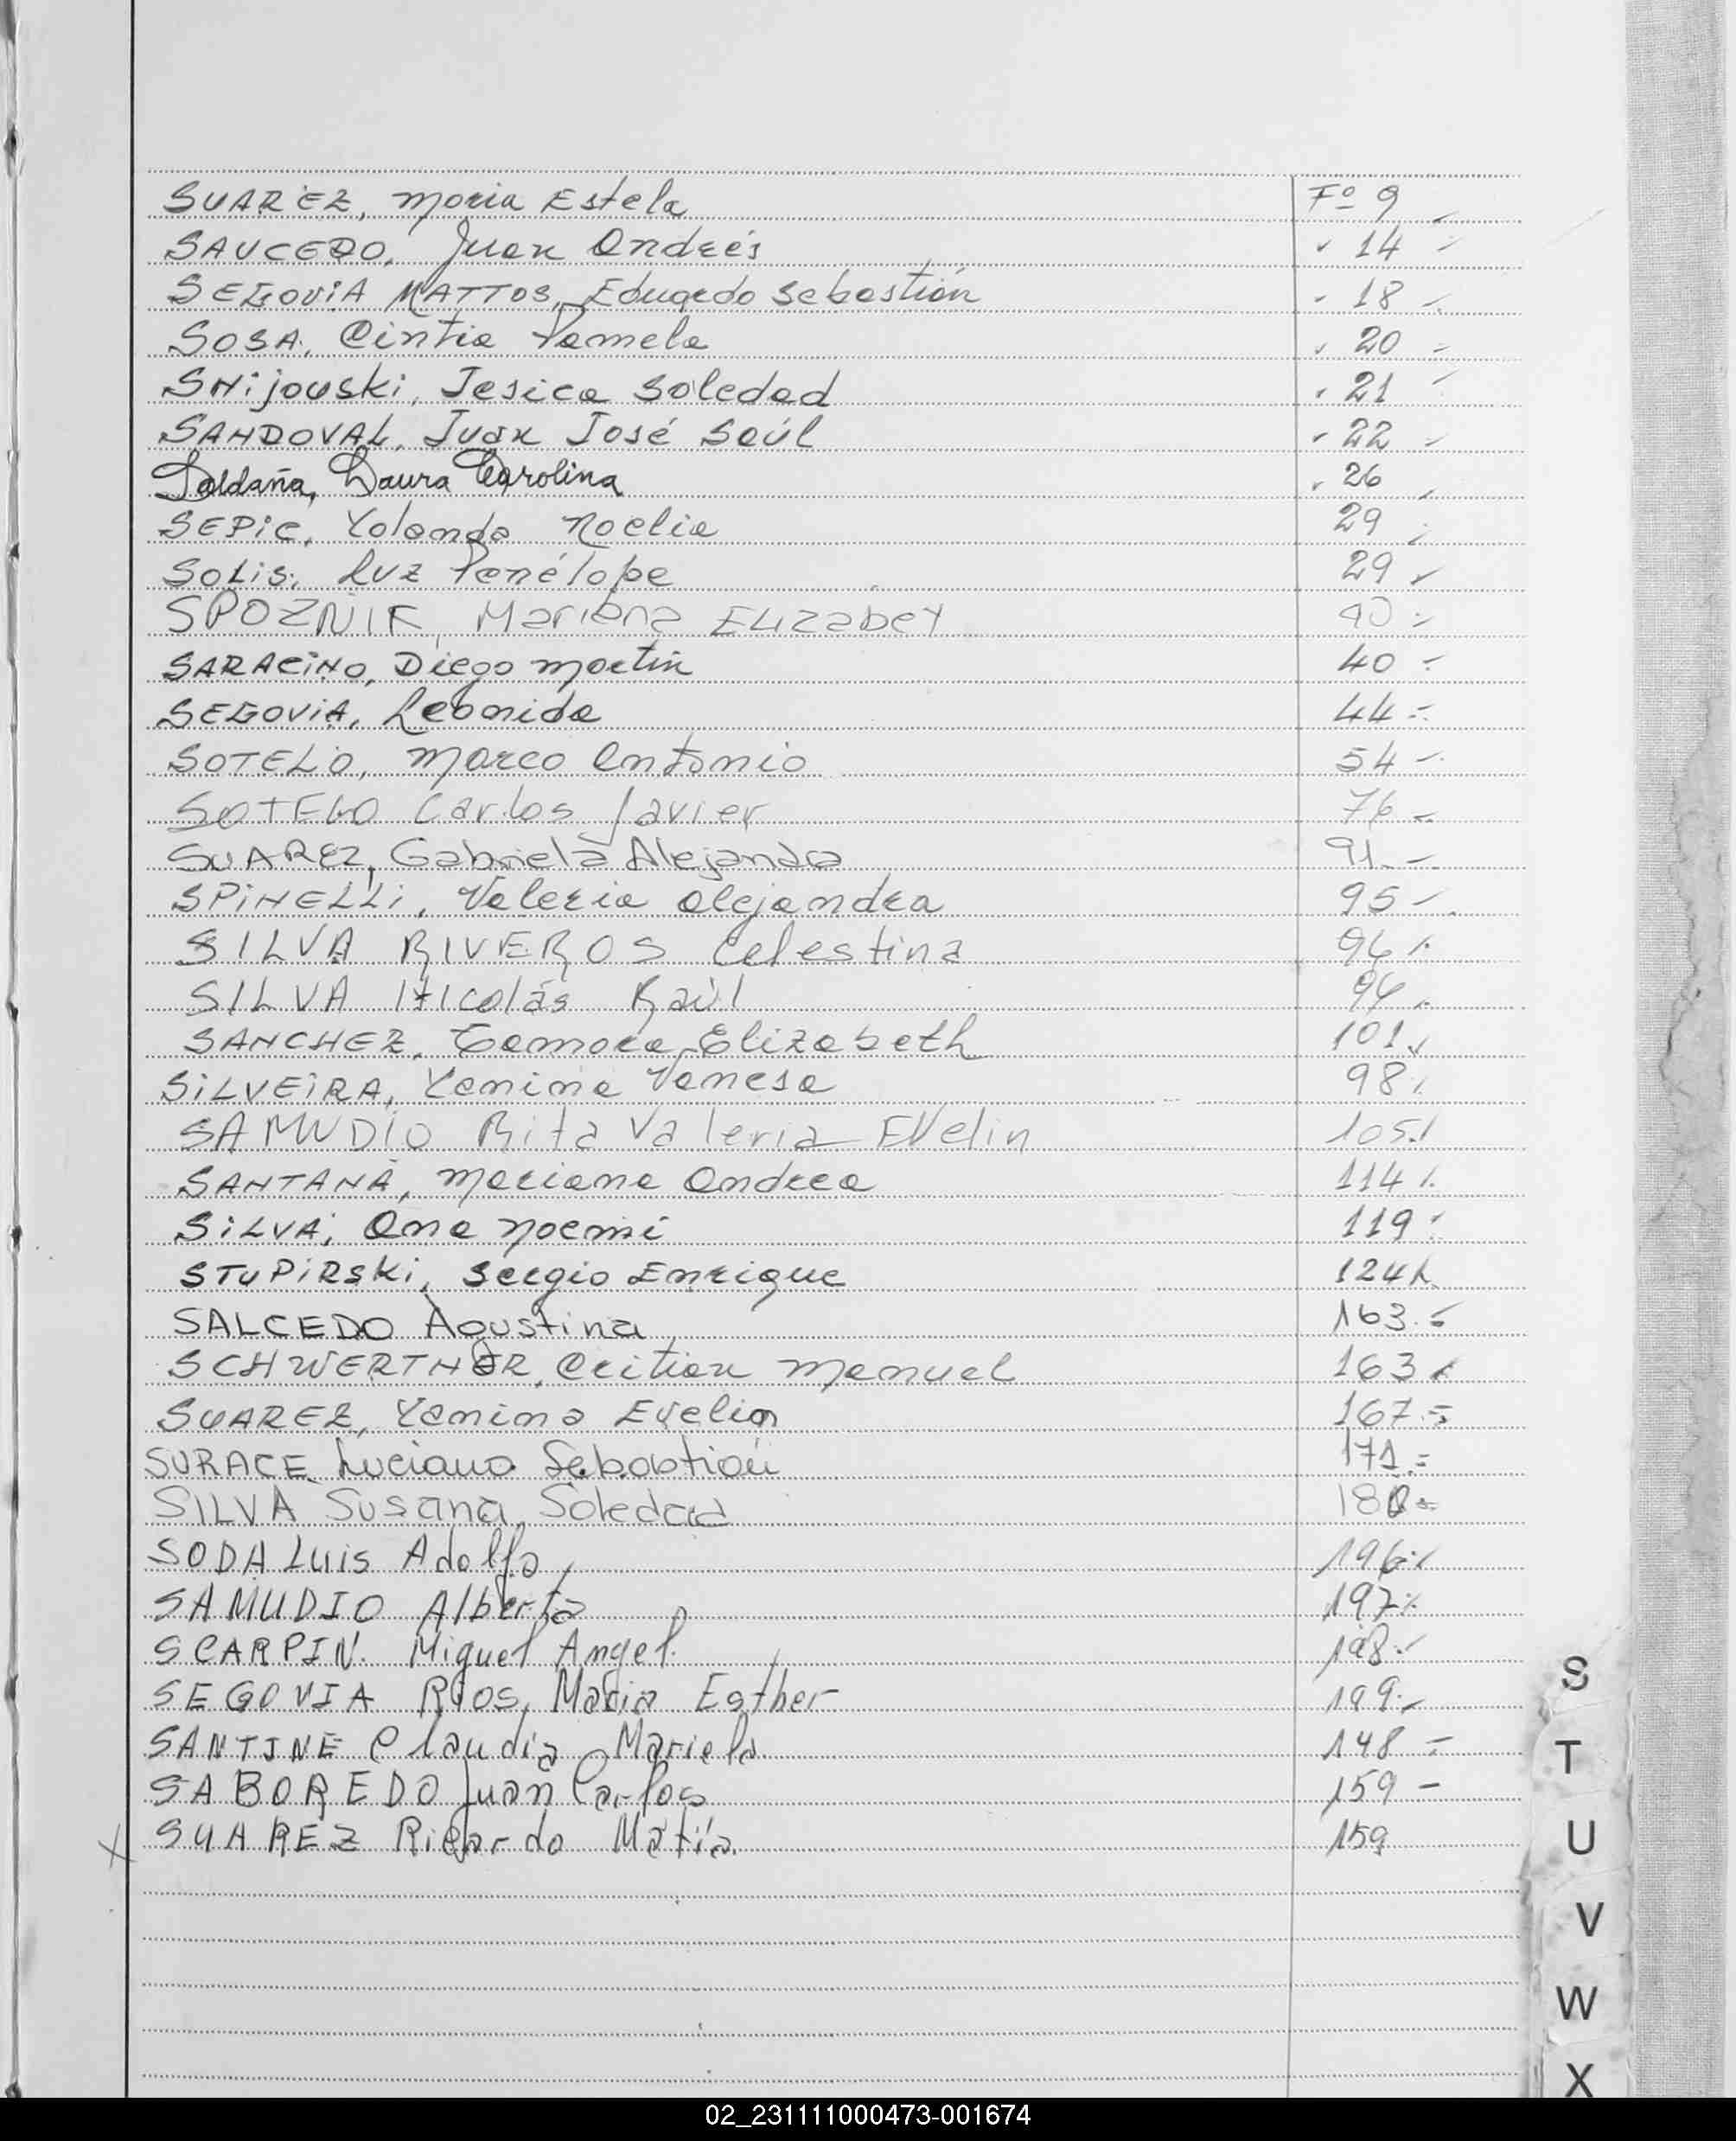 SUAREZ, María Estela Fº 9
SAUCEDO, Juan Andrés " 14
SEGOVIA MATTOS, Eduardo Sebastián " 18
SOSA, Cintia Pamela " 20
SNijouski, Jesica Soledad " 21
SANDOVAL, Juan José Saúl " 22
Saldaña, Laura Carolina " 26
SEPIC, Yolanda Noelia 29
SOLIS, Luz Penélope 29
SPOZNIK, Mariana ELIZabeT 40
SARACINO, Diego Martín 40
SEGOVIA, Leonida 44
SOTELO, Marco Antonio 54
SOTELO Carlos Javier 76
SUAREZ, Gabriela Alejandra 91
SPINELLI, Valeria Alejandra 95
SILVA RIVEROS Celestina 96
SILVA Nicolás Raúl 96
SANCHEZ, Tamara Elizabeth 101
SILVEIRA, Yanina Vanesa 98
SAMUDIO Rita Valeria EVelin 105
SANTANA, Mariana Andrea 114
SILVA, Ana Noemí 119
STUPIRSKi, Sergio Enrique 124
SALCEDO Agustina 163
SCHWERTNER, Critian Manuel 163
SUAREZ, Yanina Evelin 167
SURACE Luciano Sebastián 171
SILVA Susana Soledad 180
SODA Luis Adolfo 196
SAMUDIO Alberto 197
SCARPIN. Miguel Angel. 198
SEGOVIA RIOS, María Esther 199
SANTINE Claudia Mariela 148
SABOREDO Juan Carlos 159
X SUAREZ Ricardo Matía. 159
S
T
U
V
W
X
02_231111000473-001674